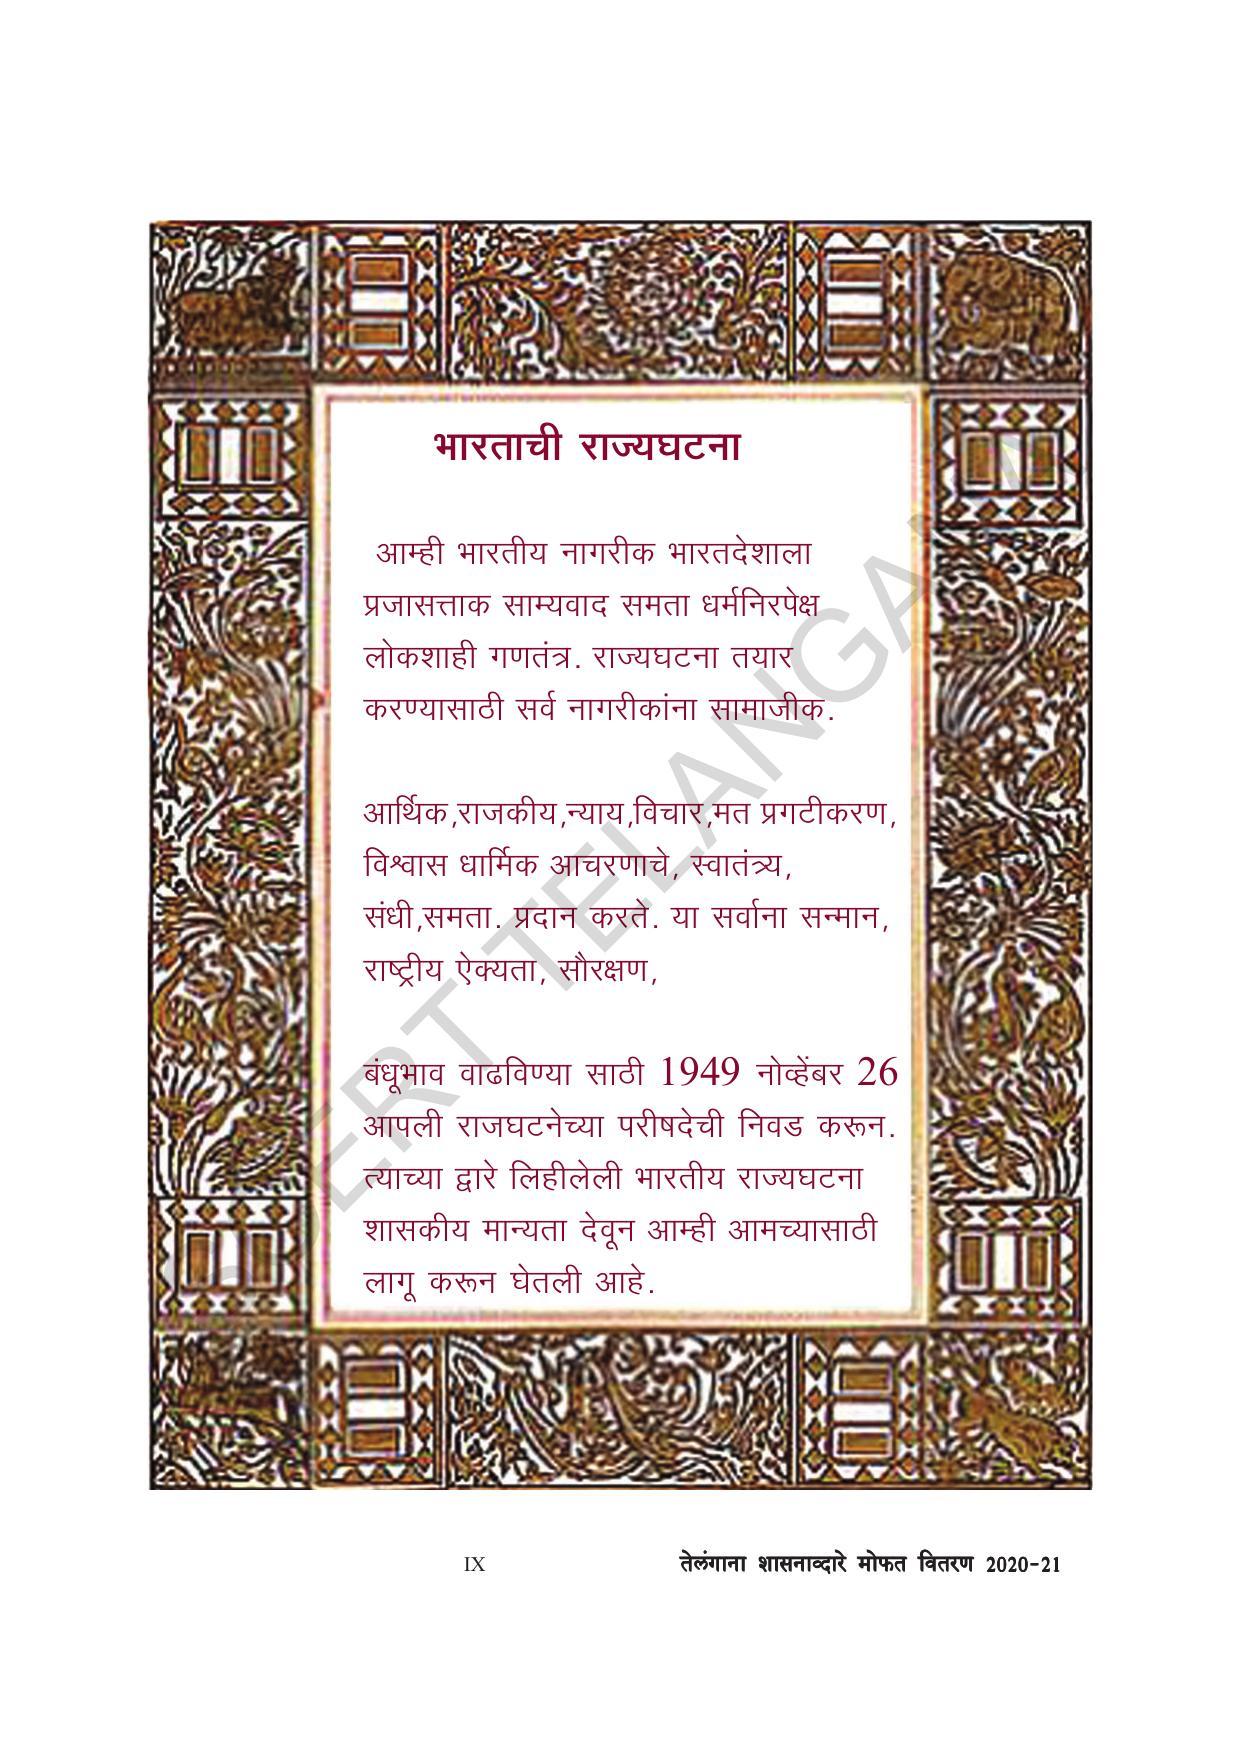 भारताची राज्यघटना
आम्ही भारतीय नागरीक भारतदेशाला
प्रजासत्ताक साम्यवाद समता धर्मनिरपेक्ष
लोकशाही गणतंत्र. राज्यघटना तयार
करण्यासाठी सर्व नागरीकांना सामाजीक.
आर्थिक,राजकीय,न्याय,विचार,मत प्रगटीकरण,
विश्वास धार्मिक आचरणाचे, स्वातंत्र्य,
संधी,समता. प्रदान करते. या सर्वाना सन्मान,
राष्ट्रीय ऐक्यता, सौरक्षण,
बंधूभाव वाढविण्या साठी 1949 नोव्हेंबर 26
आपली राजघटनेच्या परीषदेची निवड करून.
त्याच्या द्वारे लिहीलेली भारतीय राज्यघटना
शासकीय मान्यता देवून आम्ही आमच्यासाठी
लागू करून घेतली आहे.
IX तेलंगाना शासनाव्दारे मोफत वितरण 2020-21
TELANGANA